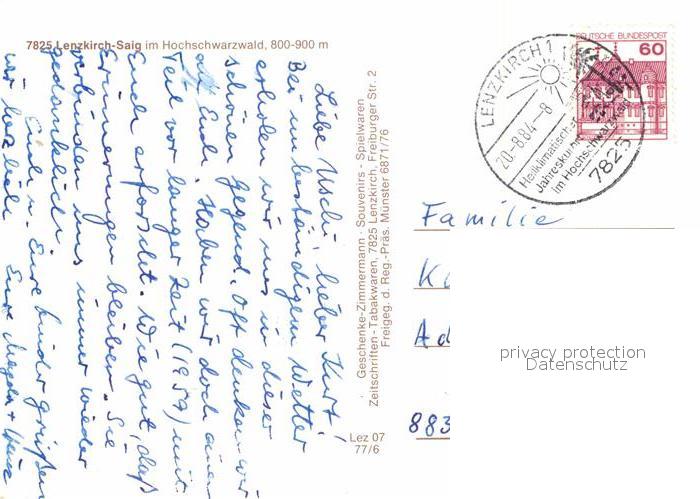 7825 Lenzkirch-Saig im Hochschwarzwald, 800-900 m
Liebe Uschi, lieber Kurt!
Bei unbeständigem Wetter
erholen wir uns in dieser
schönen Gegend. Oft denken wir
an Euch. Haben wir doch einen
Teil vor langer Zeit (1959) mit
Euch erforscht. Wie gut, daß
Erinnerungen bleiben. Sie
verbinden uns immer wieder
gedanklich.
Euch u. Eure Kinder grüßen
wir herzlich Eure Magda + Hans
Geschenke-Zimmermann · Souvenirs - Spielwaren
Zeitschriften-Tabakwaren, 7825 Lenzkirch, Freiburger Str. 2
Freigeg. d. Reg.-Präs. Münster 6871/76
Lez 07
77/6
DEUTSCHE BUNDESPOST
60
LENZKIRCH 1
20-8.84-8
Heilklimatischer
Jahreskurort
im Hochschwarzwald
7825
Familie
K
Ad
883
privacy protection
Datenschutz